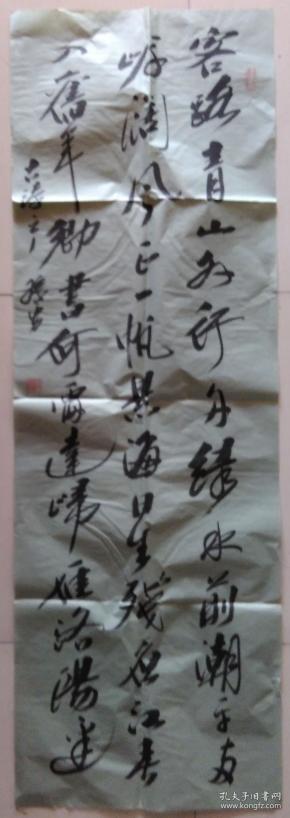 客路青山外行舟绿水前潮平两
岸阔风正一帆悬海日生残夜江春
入旧年乡书何处达归雁洛阳边
古诗之一
孔夫子旧书网
www.kongfz.com